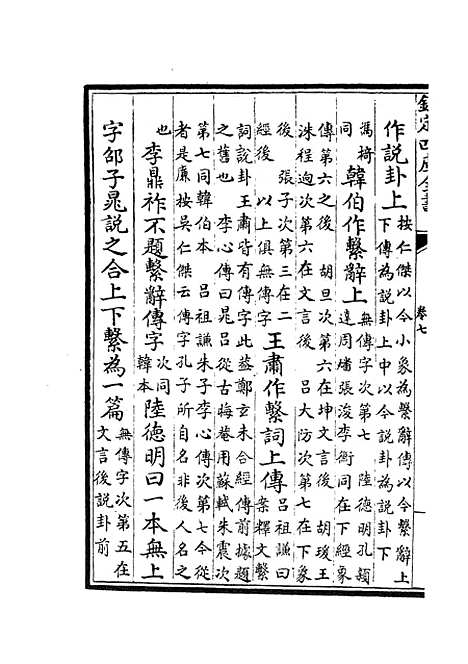 欽定四庫全書
卷七
作說卦上按仁傑以今小象為繫辭傳以今繫辭上
下傳為說卦上中以今說卦為說卦下
馮椅
同韓伯作繫辭上無傳字次第七 陸德明孔穎
達周燔張浚李衡同在下經象
傳第六之後 胡旦次第六在坤文言後 胡瑗王
洙程迥次第六在文言後 呂大防次第七在下象
後 張子次第三在二
經後 以上俱無傳字王肅作繫詞上傳呂祖謙曰
案釋文繫
詞說卦王肅皆有傳字此蓋鄭玄未合經傳前據題
之舊也 李心傳曰晁呂從古晦菴用蘇軾朱震次
第七同韓伯本 呂祖謙朱子李心傳次第七今從
者是廉按吳仁傑云傳字孔子所自名非後人名之
也 李鼎祚不題繫辭傳字次同
韓本陸德明曰一本無上
字邵子晁說之合上下繫為一篇無傳字次第五在
文言後說卦前